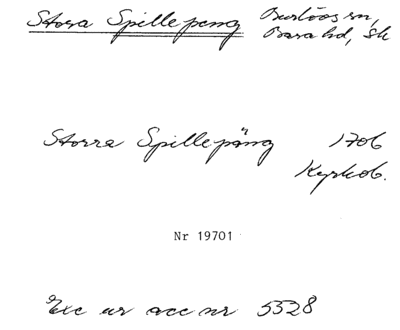 Stora Spillepeng Burlövs sn,
Bara hd, Sk
Storra Spillepäng 1706
Kyrkob.
Nr 19701
Exc ur acc nr 5528